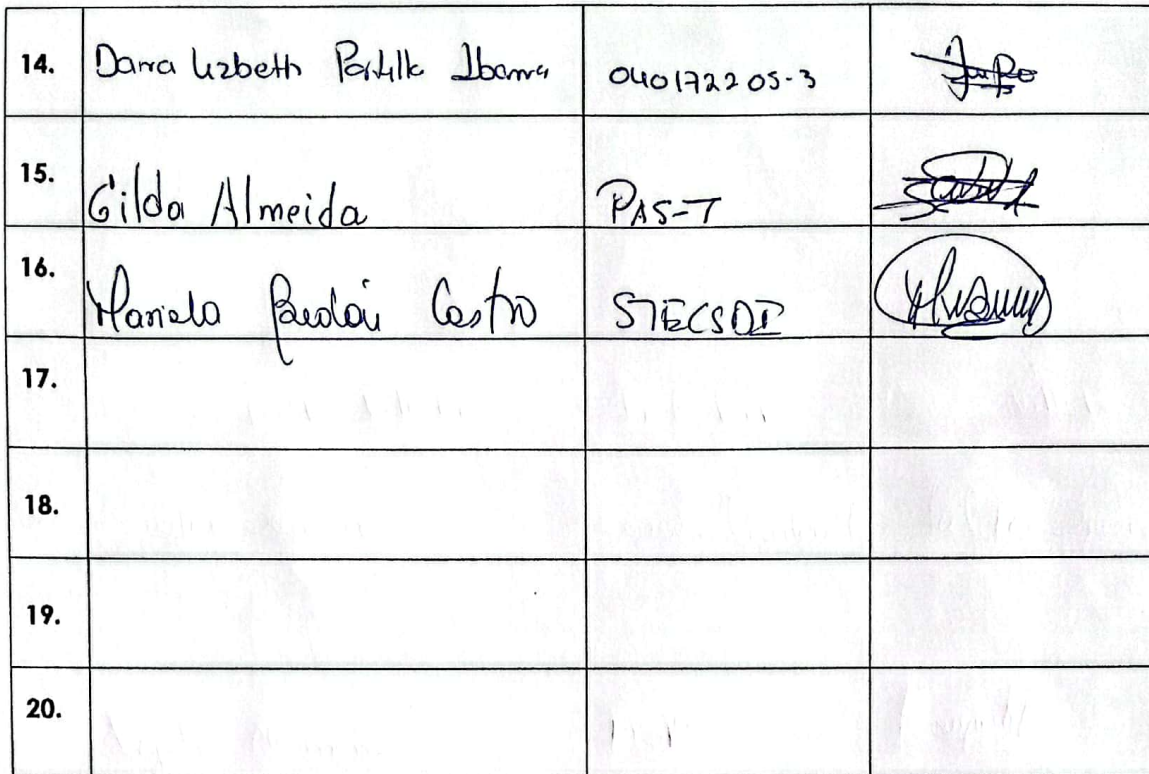 14. Dana Lizbeth Portilla Ibarra 040172205-3
15. Gilda Almeida PAS-T
16. Mariela Castro STECSDI
17.
18.
19.
20.